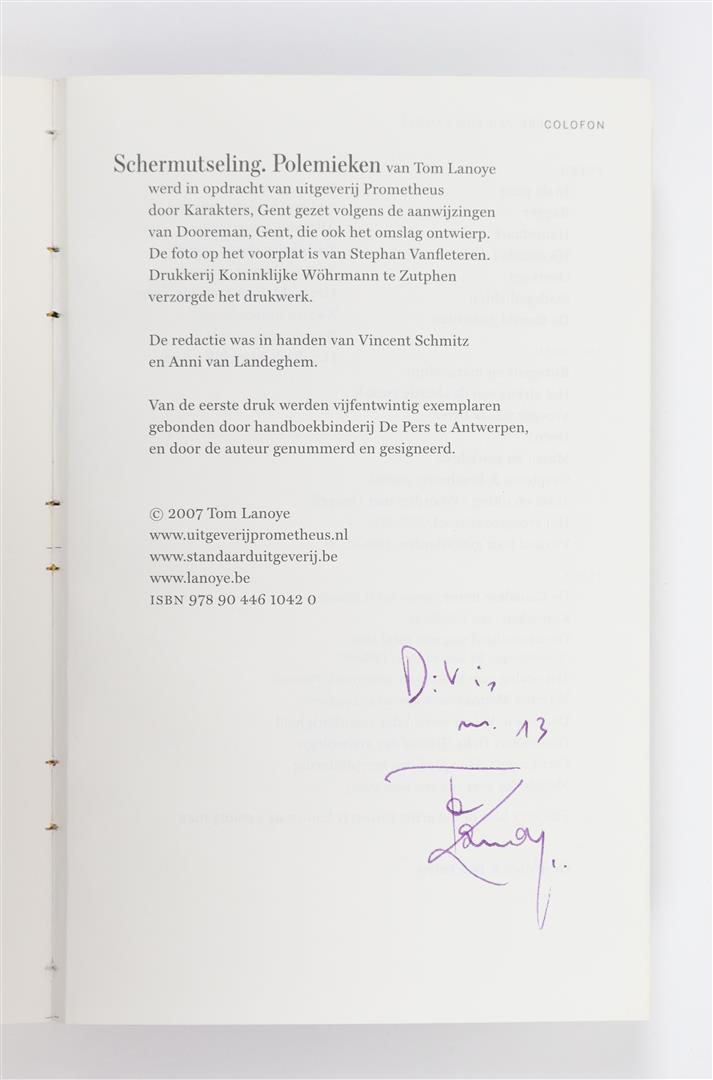 COLOFON
Schermutseling. Polemieken van Tom Lanoye
werd in opdracht van uitgeverij Prometheus
door Karakters, Gent gezet volgens de aanwijzingen
van Dooreman, Gent, die ook het omslag ontwierp.
De foto op het voorplat is van Stephan Vanfleteren.
Drukkerij Koninklijke Wöhrmann te Zutphen
verzorgde het drukwerk.
De redactie was in handen van Vincent Schmitz
en Anni van Landeghem.
Van de eerste druk werden vijfentwintig exemplaren
gebonden door handboekbinderij De Pers te Antwerpen,
en door de auteur genummerd en gesigneerd.
© 2007 Tom Lanoye
www.uitgeverijprometheus.nl
www.standaarduitgeverij.be
www.lanoye.be
ISBN 978 90 446 1042 0
Dit is
nr. 13